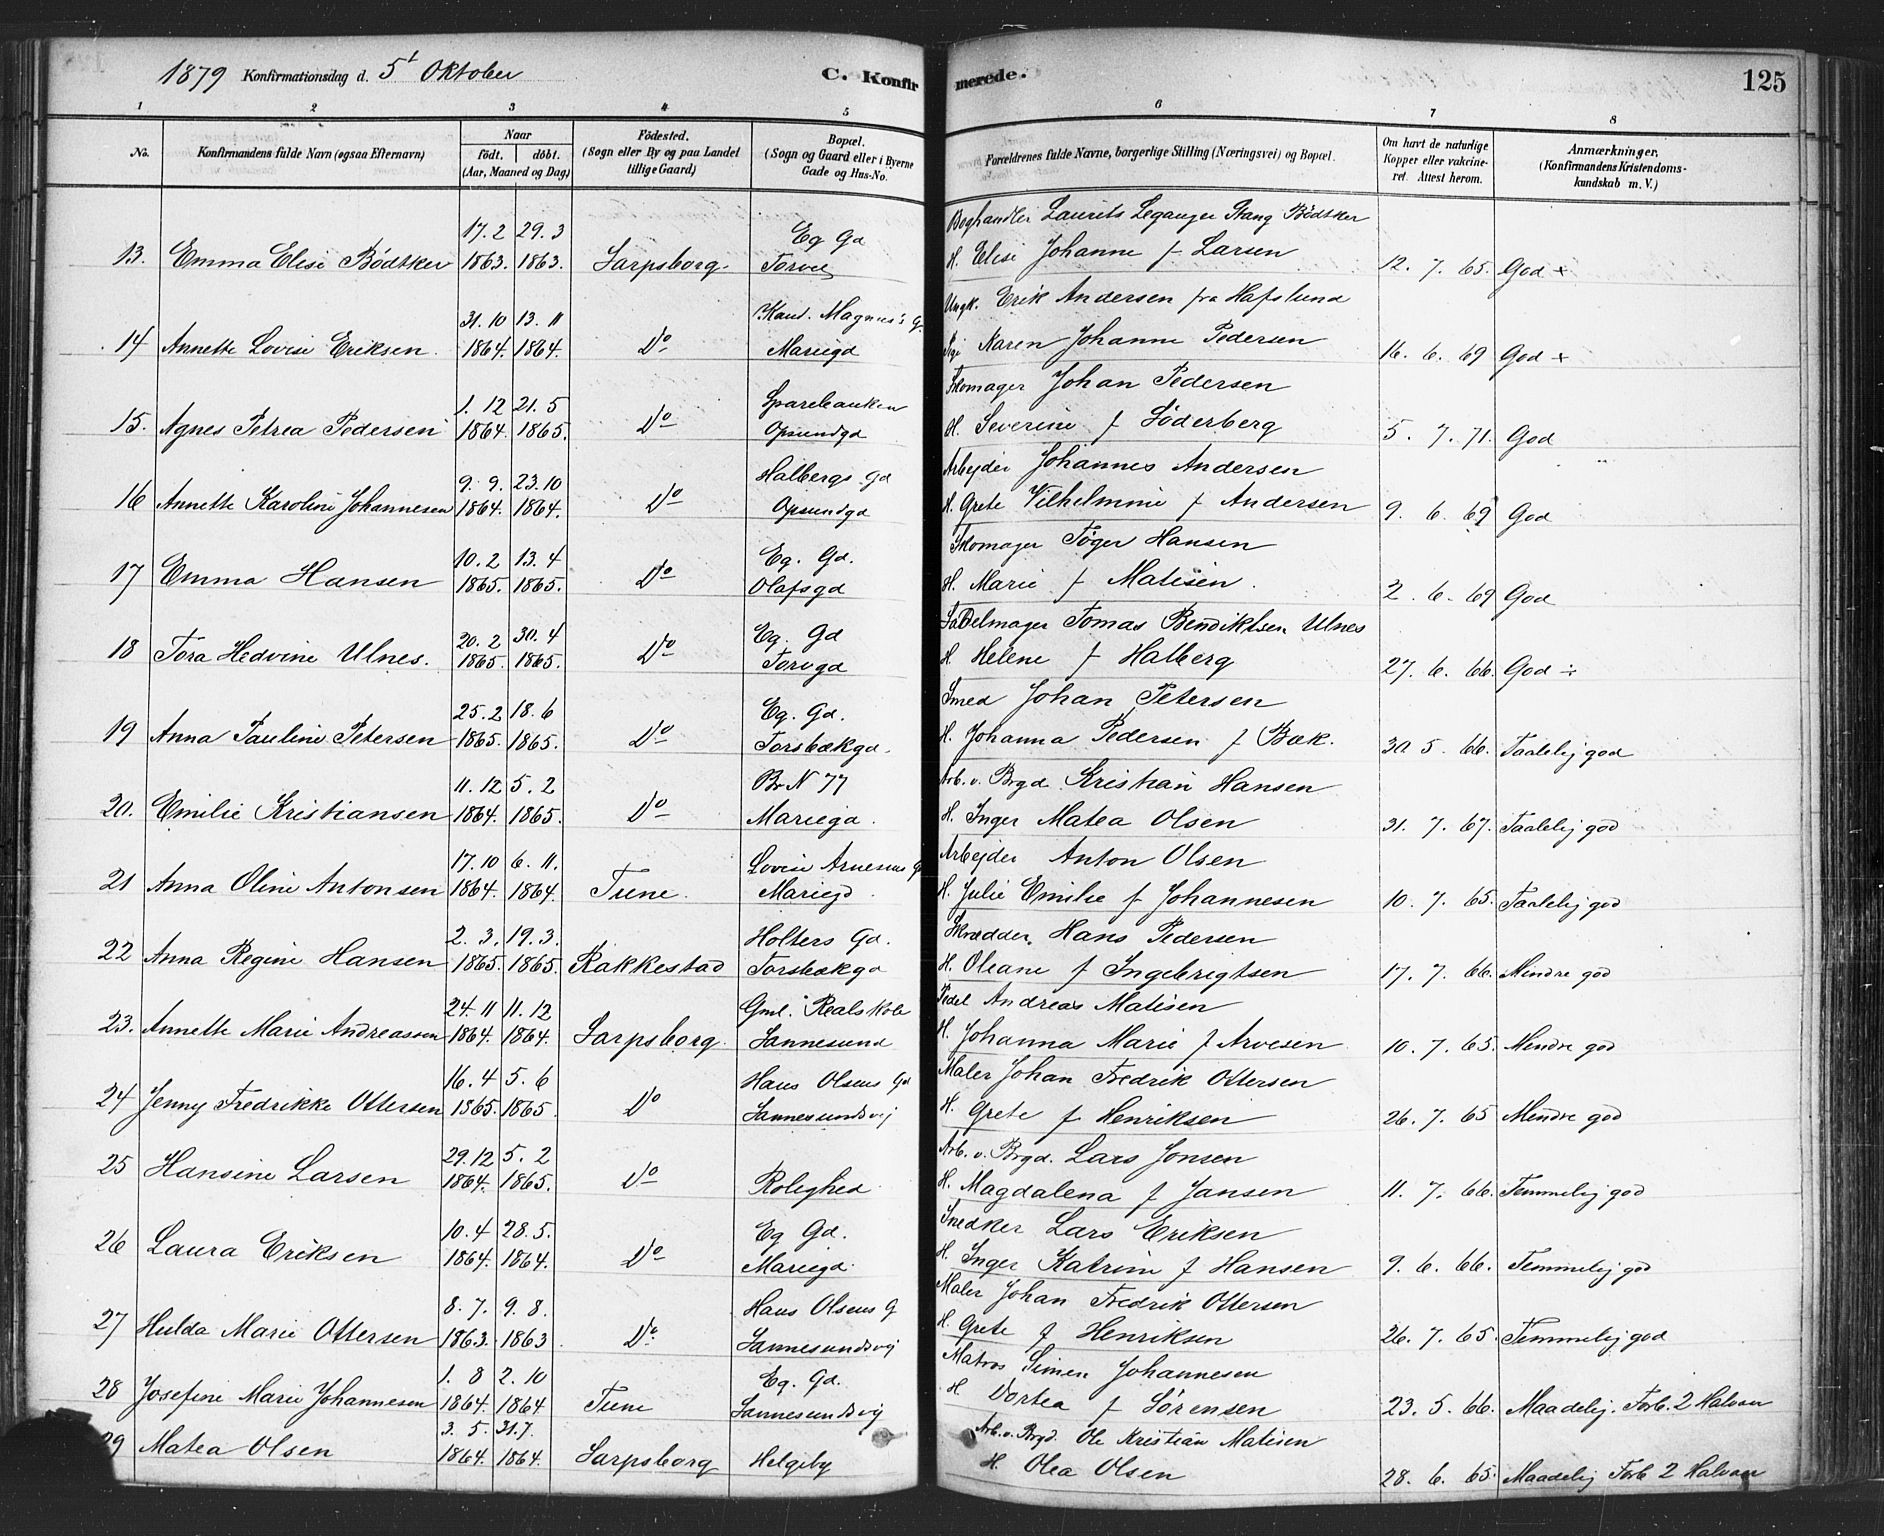 1879 Konfirmationsdag d. 5t Oktober
C. Konfirmerede.
125
1 2 3 4 5 6 7 8
No.
Konfirmandens fulde Navn (ogsaa Efternavn)
Naar
födt. döbt.
(Aar, Maaned og Dag)
Födested.
(Sogn eller By og paa Landet
tillige Gaard)
Bopæl.
(Sogn og Gaard eller i Byerne
Gade og Hus-No.
Forældrenes fulde Navne, borgerlige Stilling (Næringsvei) og Bopæl.
Om havt de naturlige
Kopper eller vakcine-
ret. Attest herom.
Anmærkninger.
(Konfirmandens Kristendoms-
kundskab m. V.)
17. 2 29. 3 Eg Gd Boghandler Laurits Leganger Stang Bödtker
13. Emma Elise Bödtker 1863. 1863. Sarpsborg. Torvet H. Elise Johanne f Larsen 12. 7. 65. God +
31. 10 13. 11 Kand. Magnus's G. Ungk. Erik Andersen fra Hafslund
14 Annette Lovise Eriksen. 1864. 1864. Do Mariegd Pige Karen Johanne Pedersen 16. 6. 69 God +
1. 12 21. 5 Sparebanken Skomager Johan Pedersen
15. Agnes Petrea Pedersen 1864. 1865. Do Opsundgd H. Severine f Söderberg 5. 7. 71. God
9. 9. 23. 10 Halbergs Gd Arbejder Johannes Andersen
16 Annette Karoline Johannesen 1864. 1864. Do Opsundgd H. Grete Vilhelmine f Andersen 9. 6. 69 God
10. 2 13. 4 Eg. Gd. Skomager Töger Hansen
17 Emma Hansen 1865. 1865. Do Olafsgd H. Marie f Matisen. 2. 6. 69 God
20. 2 30. 4 Eg. Gd Sadelmager Tomas Bendiktsen Ulnes
18 Tora Hedvine Ulnes. 1865. 1865. Do Torvgd H. Helene f Halberg 27. 6. 66. God ÷
25. 2 18. 6 Eg. Gd. Smed Johan Petersen
19 Anna Pauline Petersen 1865. 1865. Do Torsbækgd. H. Johanna Pedersen f Bæk. 30 5. 66. Taalelig god
11. 12 5. 2 Br N 77 Arb. v. Brgd. Kristian Hansen
20. Emilie Kristiansen 1864. 1865. Do Mariegd. H. Inger Matea Olsen 31. 7. 67. Taalelig god
17. 10 6. 11. Lovise Arnesens G Arbejder Anton Olsen
21 Anna Oline Antonsen 1864. 1864. Tune. Mariegd. H. Julie Emilie f Johannesen 10. 7. 65. Taalelig god
2. 3. 19. 3. Holters Gd. Skrædder. Hans Pedersen
22 Anna Regine Hansen 1865. 1865. Rakkestad Torsbækgd H. Oleane f Ingebrigtsen 17. 7. 66. Mindre god
24. 11 11. 12 Gml. Realskole Pedel Andreas Matisen
23. Annette Marie Andreassen 1864. 1864. Sarpsborg. Sannesund H. Johanna Marie f Arvesen 10. 7. 65. Mindre god
16. 4 5. 6 Hans Olsens Gd Maler Johan Fredrik Ottersen
24 Jenny Fredrikke Ottersen 1865. 1865. Do Sannesundsvej H. Grete f Henriksen 26. 7. 65 Mindre god
29. 12 5. 2 Arb. v. Brgd. Lars Jonsen
25 Hansine Larsen 1864. 1865. Do Rolighed H. Magdalena f Jansen 11. 7. 66. Temmelig god
10. 4 28. 5. Eg Gd. Snedker Lars Eriksen
26 Laura Eriksen 1864. 1864. Do Mariegd. H. Inger Katrine f Hansen 9. 6. 66. Temmelig god
8. 7. 9. 8. Hans Olsens G Maler Johan Fredrik Ottersen
27 Hulda Marie Ottersen 1863. 1863. Do. Sannesundsvej H. Grete f Henriksen 26. 7. 65. Temmelig god
1. 8 2. 10 Eg. Gd. Matros Simen Johannesen
28 Josefine Marie Johannesen 1864. 1864 Tune Sannesundsvej H. Dortea f Sörensen 23. 5. 66. Maadelig. Forb. 2 Halvan
3. 5. 31. 7. Arb. v. Brgd. Ole Kristian Matisen
29 Matea Olsen 1864. 1864. Sarpsborg Helgeby H. Olea Olsen 28. 6. 65. Maadelig Forb 2 Halvan